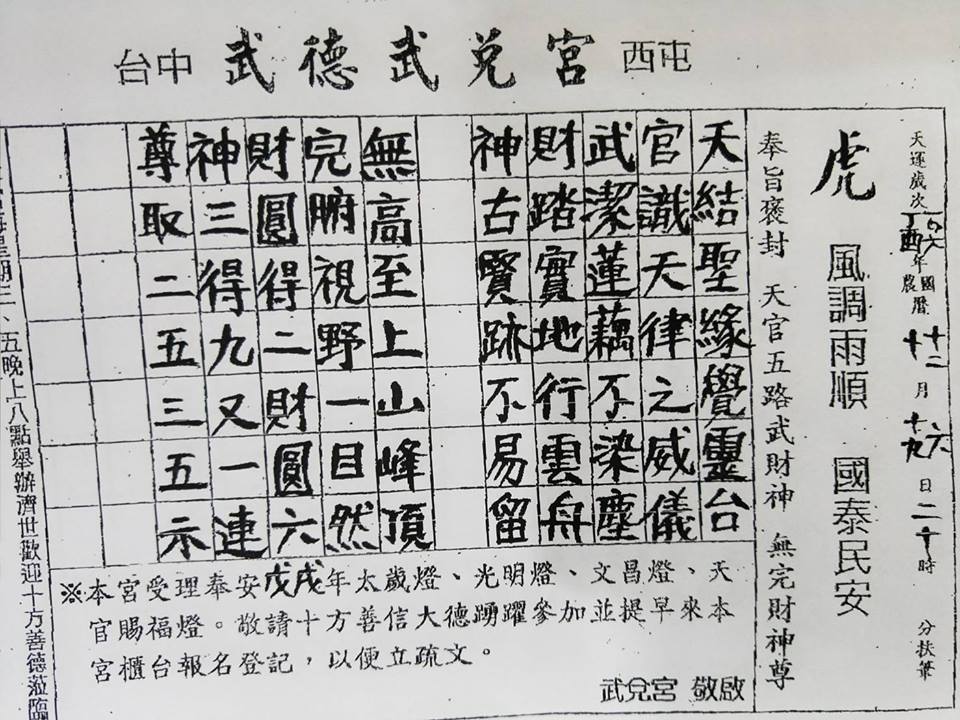 台中 武德武兌宮 西屯
天運歲次 百六 丁酉 年 國曆 農曆 十二 十 月 六 十九 日 二十 時 分扶筆
虎 風調雨順 國泰民安
奉旨褒封 天官五路武財神 無完財神尊
天結聖緣覺靈台
官識天律之威儀
武潔蓮藕不染塵
財踏實地行雲舟
神古賢跡不易留
無高至上山峰頂
完腑視野一目然
財圓得二財圓六
神三得九又一連
尊取二五三五示
※本宮受理奉安戊戌年太歲燈、光明燈、文昌燈、天
官賜福燈。敬請十方善信大德踴躍參加並提早來本
宮櫃台報名登記，以便立疏文。
武兌宮 敬啟
每星期三、五晚上八點舉辦濟世歡迎十方善德蒞臨